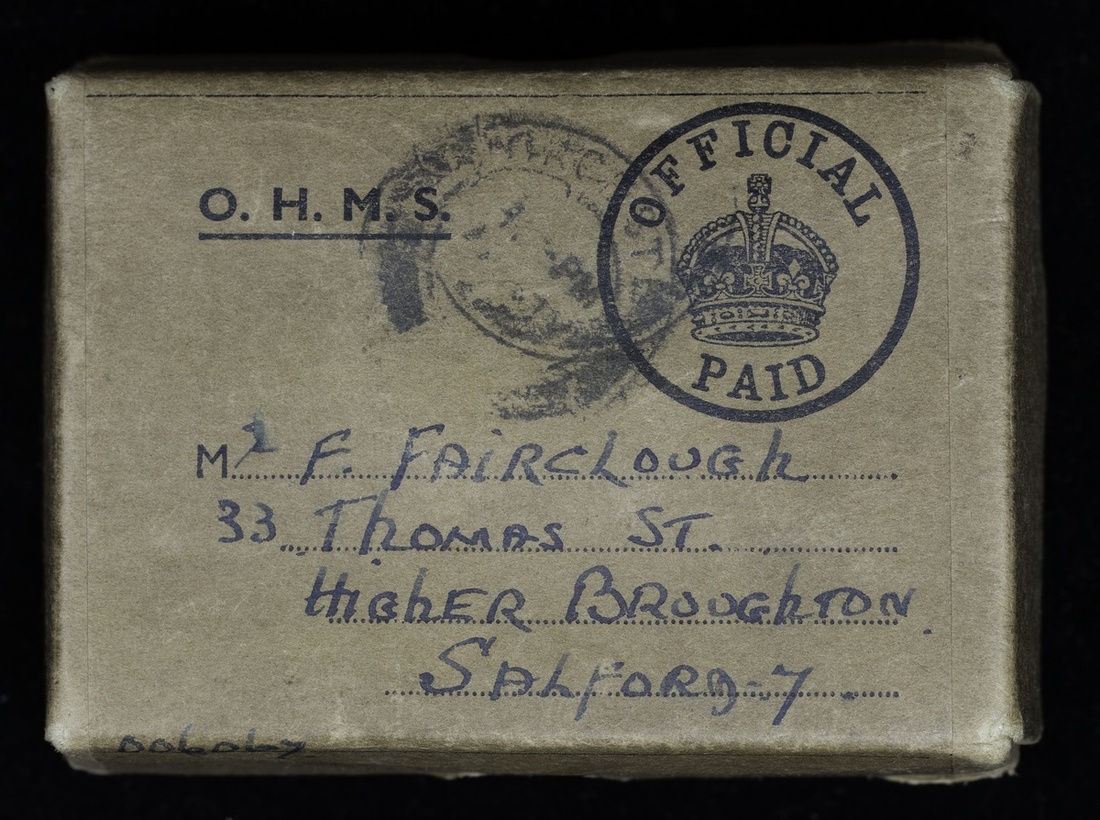 O. H. M. S.
OFFICIAL
PAID
PM
Mr F. FAIRCLOUGh
33 ThOMAS ST.
HIGhER BROUGhTON.
SALFORD-7.